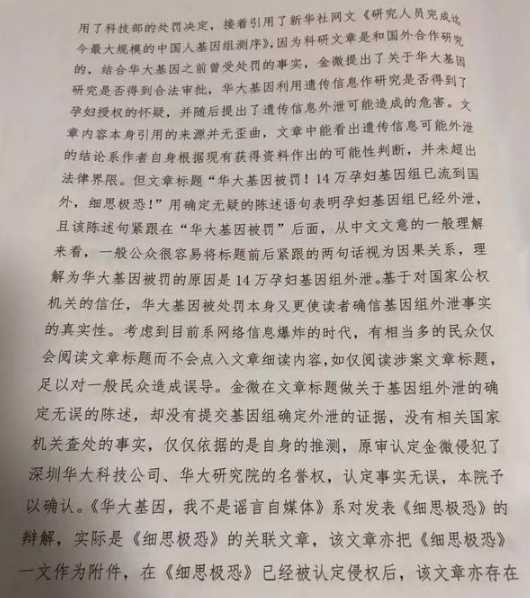 用了科技部的处罚决定，接着引用了新华社网文《研究人员完成迄
今最大规模的中国人基因组测序》，因为科研文章是和国外合作研究
的，结合华大基因之前曾受处罚的事实，金微提出了关于华大基因
研究是否得到合法审批，华大基因利用遗传信息作研究是否得到了
孕妇授权的怀疑，并随后提出了遗传信息外泄可能造成的危害。文
章内容本身引用的来源并无歪曲，文章中能看出遗传信息可能外泄
的结论系作者自身根据现有获得资料作出的可能性判断，并未超出
法律界限。但文章标题“华大基因被罚！14万孕妇基因组已流到国
外，细思极恐！”用确定无疑的陈述语句表明孕妇基因组已经外泄，
且该陈述句紧跟在“华大基因被罚”后面，从中文文意的一般理解
来看，一般公众很容易将标题前后紧跟的两句话视为因果关系，理
解为华大基因被罚的原因是14万孕妇基因组外泄。基于对国家公权
机关的信任，华大基因被处罚本身又更使读者确信基因组外泄事实
的真实性。考虑到目前系网络信息爆炸的时代，有相当多的民众仅
会阅读文章标题而不会点入文章细读内容，如仅阅读涉案文章标题，
足以对一般民众造成误导。金微在文章标题做关于基因组外泄的确
定无误的陈述，却没有提交基因组确定外泄的证据，没有相关国家
机关查处的事实，仅仅依据的是自身的推测，原审认定金微侵犯了
深圳华大科技公司、华大研究院的名誉权，认定事实无误，本院予
以确认。《华大基因，我不是谣言自媒体》系对发表《细思极恐》的
辩解，实际是《细思极恐》的关联文章，该文章亦把《细思极恐》
一文作为附件，在《细思极恐》已经被认定侵权后，该文章亦存在